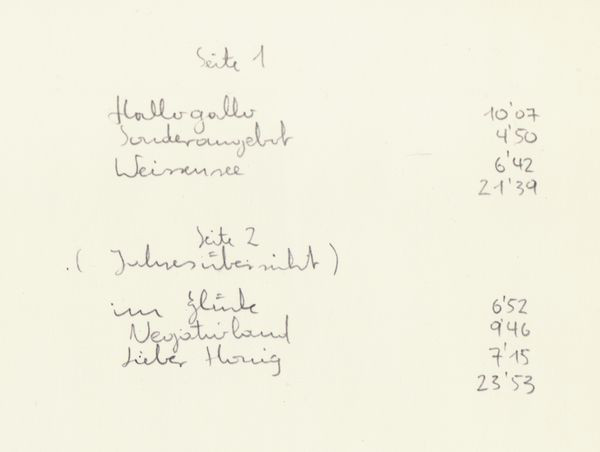 Seite 1
Hallogallo 10'07
Sonderangebot 4'50
Weissensee 6'42
21'39
Seite 2
(Jahresübersicht)
im Glück 6'52
Negativland 9'46
Lieber Honig 7'15
23'53